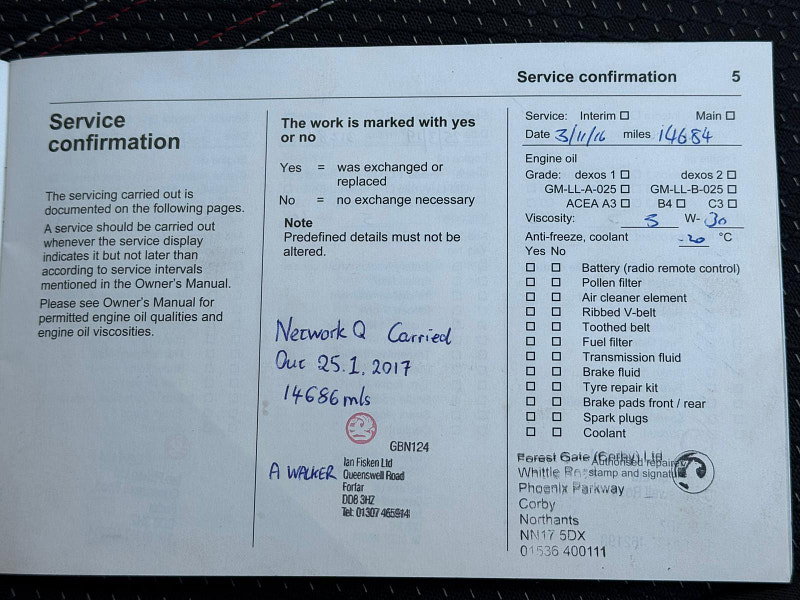 Service confirmation 5
Service
confirmation
The servicing carried out is
documented on the following pages.
A service should be carried out
whenever the service display
indicates it but not later than
according to service intervals
mentioned in the Owner's Manual.
Please see Owner's Manual for
permitted engine oil qualities and
engine oil viscosities.
The work is marked with yes
or no
Yes = was exchanged or
replaced
No = no exchange necessary
Note
Predefined details must not be
altered.
Network Q Carried
Out 25.1.2017
14686mls
GBN124
A WALKER
Ian Fisken Ltd
Queenswell Road
Forfar
DD8 3HZ
Tel: 01307 465914
Service: Interim ☐ Main ☐
Date 3/11/16 miles 14684
Engine oil
Grade: dexos 1 ☐ dexos 2 ☐
GM-LL-A-025 ☐ GM-LL-B-025 ☐
ACEA A3 ☐ B4 ☐ C3 ☐
Viscosity: 5 W- 30
Anti-freeze, coolant -20 °C
Yes No
☐ ☐ Battery (radio remote control)
☐ ☐ Pollen filter
☐ ☐ Air cleaner element
☐ ☐ Ribbed V-belt
☐ ☐ Toothed belt
☐ ☐ Fuel filter
☐ ☐ Transmission fluid
☐ ☐ Brake fluid
☐ ☐ Tyre repair kit
☐ ☐ Brake pads front / rear
☐ ☐ Spark plugs
☐ ☐ Coolant
Forest Gate (Corby) Ltd
Authorised repairer
Whittle stamp and
Phoenix Parkway
Corby
Northants
NN17 5DX
01536 400111